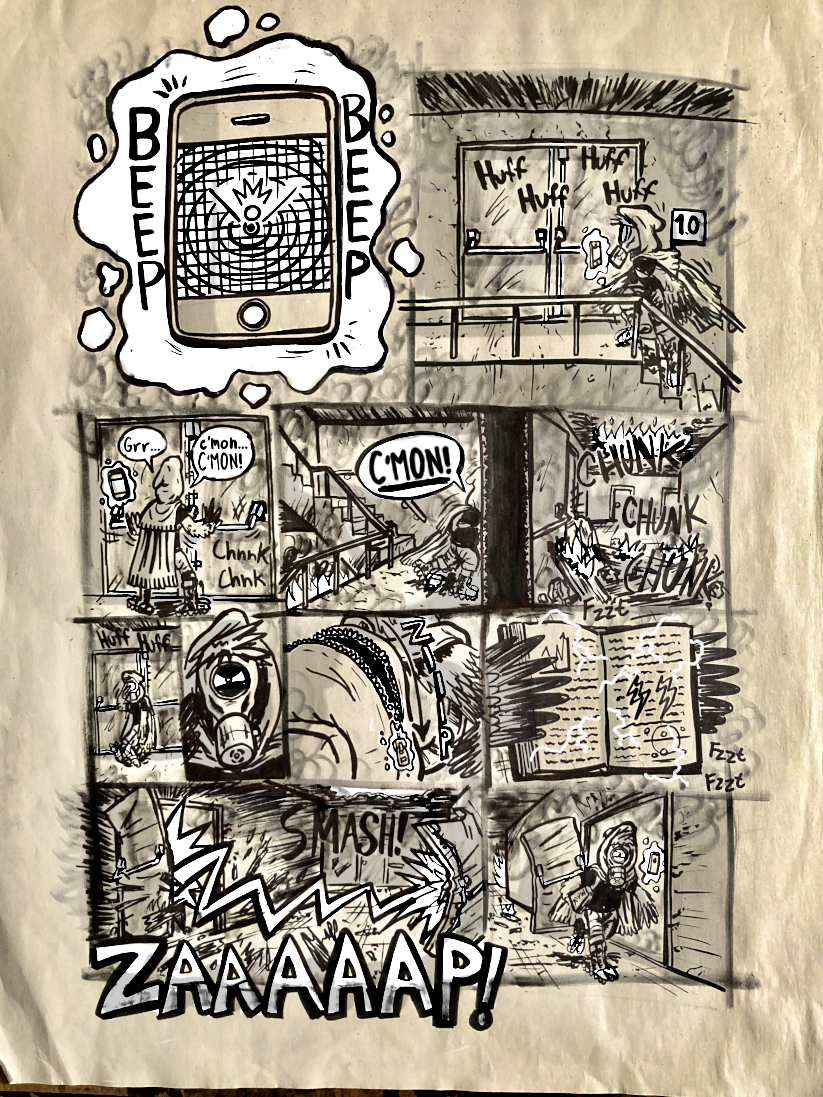 BEEP
BEEP
Huff
Huff
Huff
Huff
10
Grr...
c'mon...
C'MON!
Chnnk
Chnk
C'MON!
CHUNK
CHUNK
CHUNK
Huff Huff
ZIIIP
Fzzt
Fzzt
Fzzt
SMASH!
ZAAAAAAP!